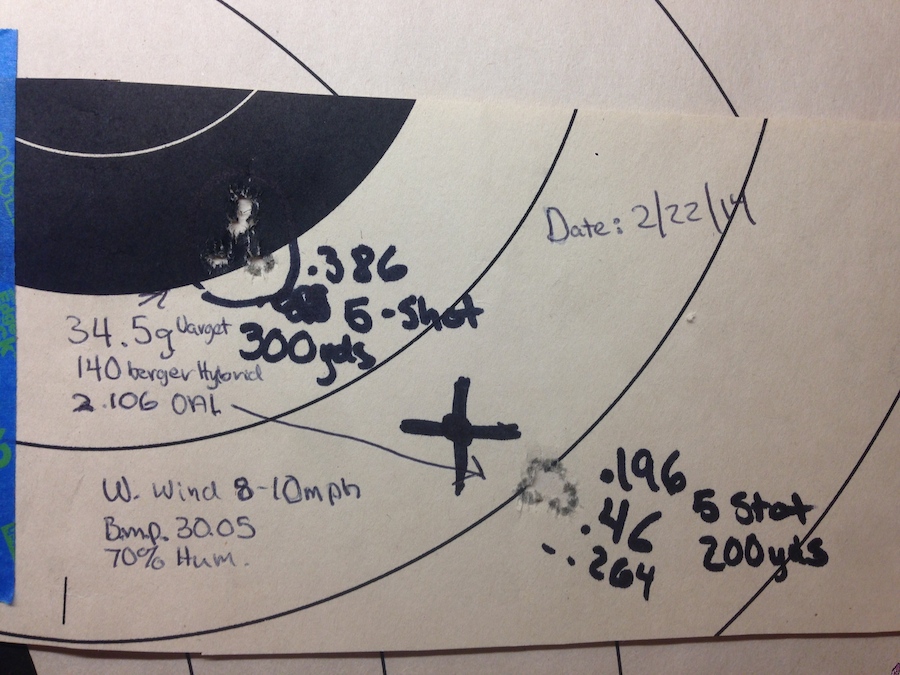 Date: 2/22/14
.386
5-Shot
300yds
34.5g Varget
140 berger Hybrid
2.106 OAL
W. Wind 8-10mph
B.m.p. 30.05
70% Hum.
.196
.46
- .264
5 Shot
200yds